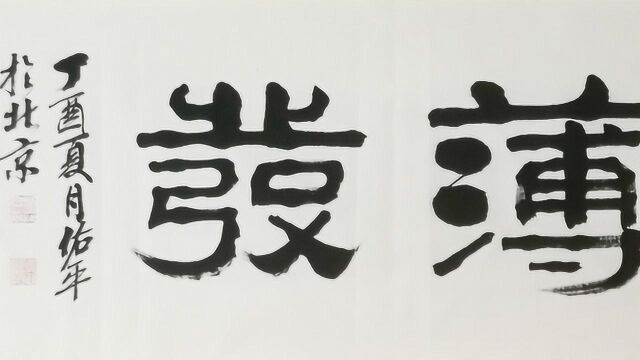 薄發
丁酉夏月佑年
於北京